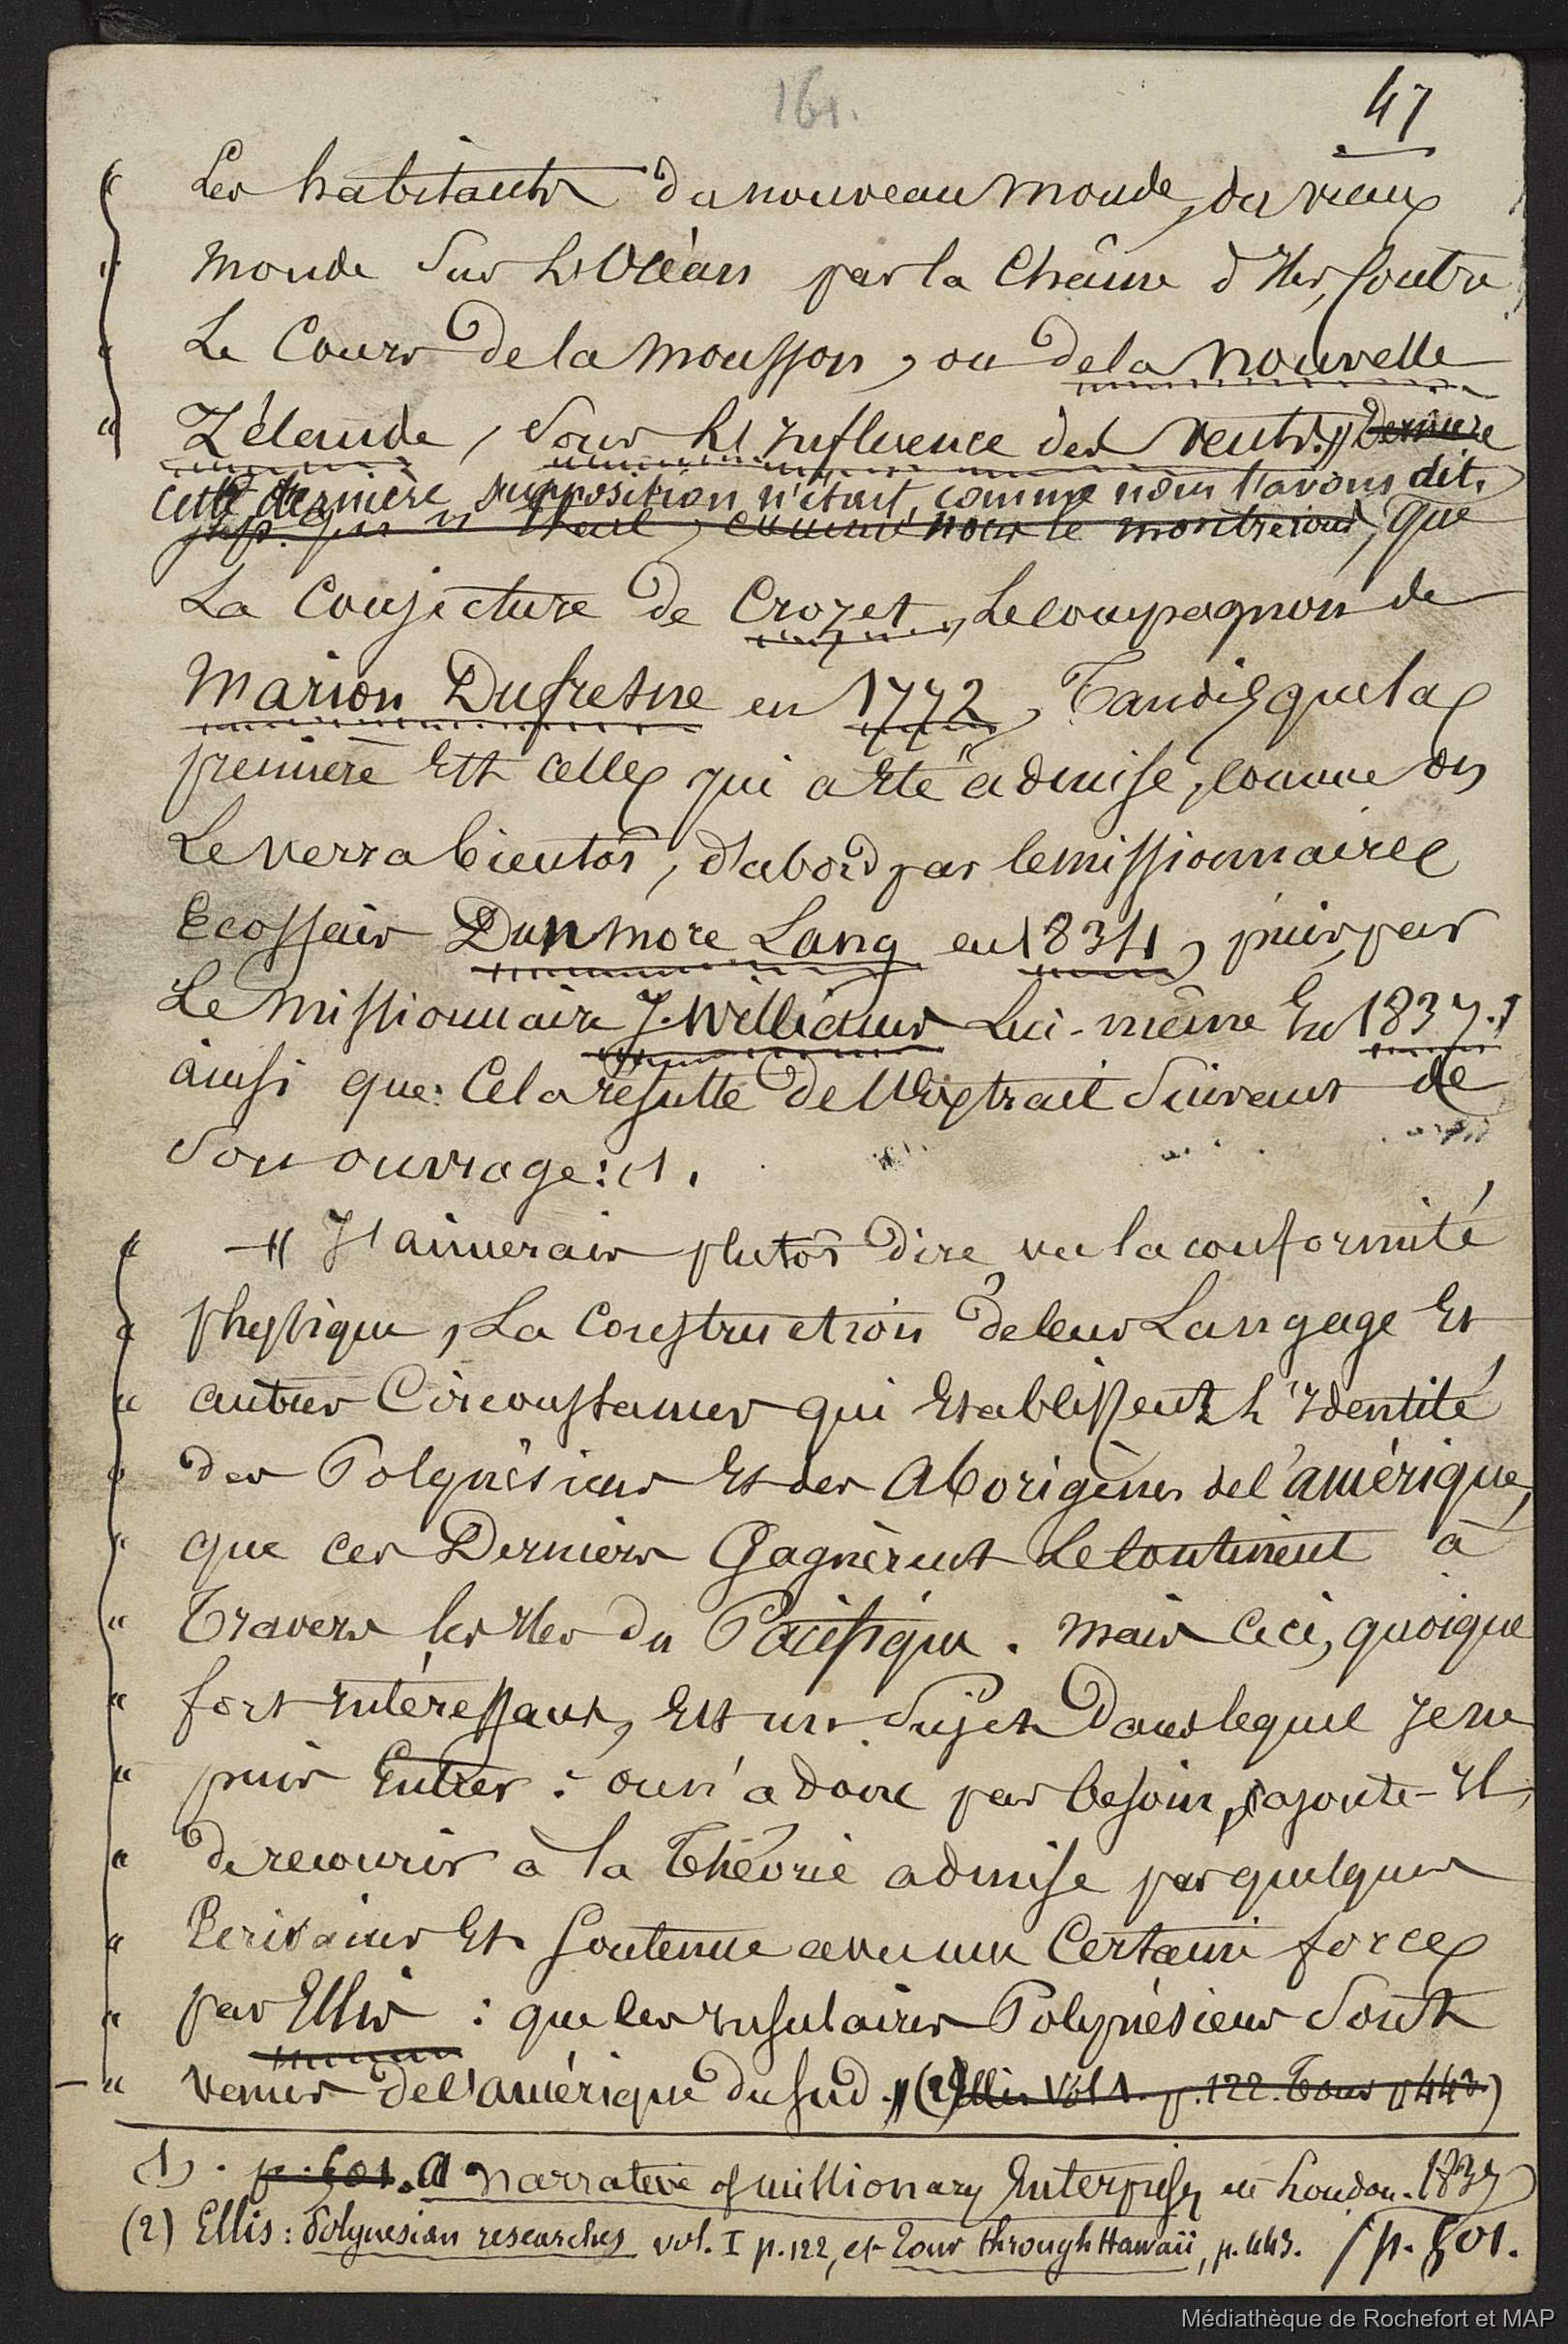 161.
47
« Les habitants du nouveau monde, du vieux
« monde sur l'Océan par la Chaîne d'Iles, contre
« Le Cours de la Mousson, ou de la Nouvelle
« Zélande, sous l'Influence des vents. » Dernière
cette dernière supposition n'était, comme nous l'avons dit,
comme nous le montrerons, que
La Conjecture de Crozet, Le compagnon de
Marion Dufresne en 1772, Tandis que la
première Est celle qui a Eté admise, comme on
Le verra bientôt, d'abord par le missionnaire
Ecossais Dunmore Lang en 1834, puis par
Le Missionnaire J. Williams Lui-même En 1837.
ainsi que Cela résulte de l'Extrait Suivant de
Son ouvrage: (1.
« — « J'aimerais plutôt dire, vu la conformité
« physique, La Construction de leur Langage Et
« autres Circonstances qui Etablissent L'Identité
« des Polynésiens Et des Aborigènes de l'amérique,
« que ces Derniers Gagnèrent Le Continent à
« Travers les Iles du Pacifique. Mais Ceci, quoique
« fort Intéressant, Est un Sujet Dans lequel Je ne
« puis Entrer : on n'a donc pas besoin, ajoute-Il,
« de recourir à la Théorie admise par quelques
« Ecrivains Et Soutenue avec une Certaine force
« par Ellis : que les Insulaires Polynésiens Sont
— « venus de l'amérique du Sud. » (2) Ellis Vol 1. p. 122. Tour p 443.)
(1) . p. 501. A Narrative of missionary Enterprises etc London. 1837
(2) Ellis: Polynesian researches vol. I p. 122, et Tour through Hawaii, p. 443. / p. 501.
Médiathèque de Rochefort et MAP